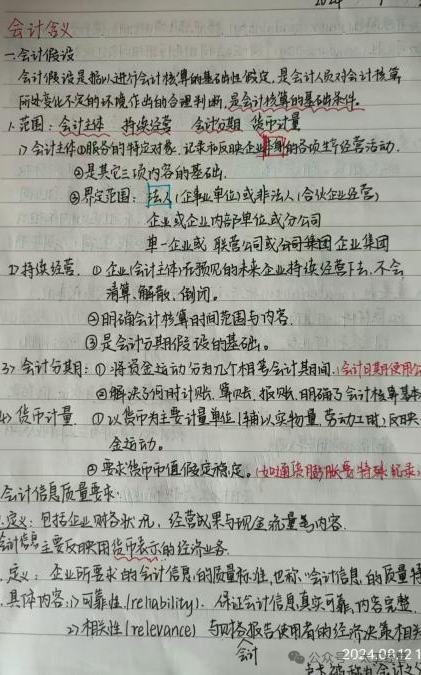 会计含义
一.会计假设
会计假设是指以进行会计核算的基础性假定,是会计人员对会计核算
所处变化不定的环境作出的合理判断,是会计核算的基础条件。
1.范围:会计主体 持续经营 会计分期 货币计量
1>会计主体①服务的特定对象,记录和反映企业本身的各项生产经营活动.
②是其它三项内容的基础.
③界定范围:法人(企事业单位)或非法人(合伙企业经营)
企业或企业内部单位或分公司
单一企业或 联营公司或公司集团 企业集团
2)持续经营. ①企业(会计主体)在预见的未来企业持续经营下去,不会
清算、解散、倒闭。
②明确会计核算时间范围与内容.
③是会计分期假设的基础。
3>会计分期:①将资金运动分为几个相等会计期间.(会计日期使用公
②解决了何时计账、算账、报账,明确了会计核算基本
4>货币计量. ①以货币为主要计量单位(辅以实物量、劳动工时)反映
金运动。
②要求货币币值假定稳定。(如通货膨胀要特殊记录)
会计信息质量要求:
.定义:包括企业财务状况、经营成果与现金流量等内容.
会计信息主要反映用货币表示的经济业务.
.定义:企业所要求的会计信息的质量标准,也称"会计信息的质量特
.具体内容:1)可靠性(reliability). 保证会计信息真实可靠,内容完整.
2)相关性(relevance) 与财务报告使用者的经济决策相关
会计
2024.08.12 1
公众号